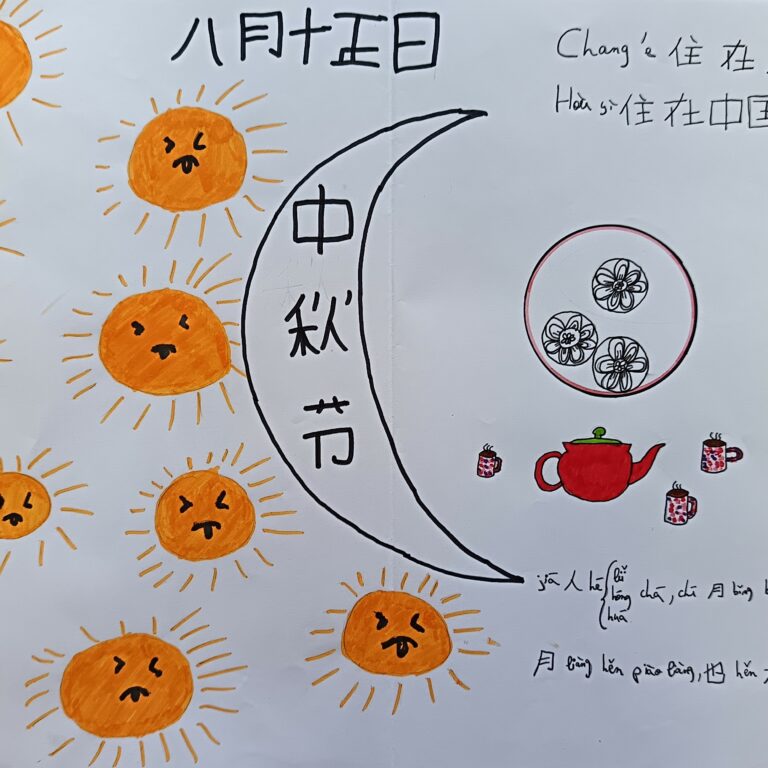 八月十正日
Chang'e 住在
Hòu yì 住在中国
中秋节
jiā 人 hē
lǜ
hóng chá, chī 月 bǐng
huā
月 liàng hěn piào liàng, 也 hěn